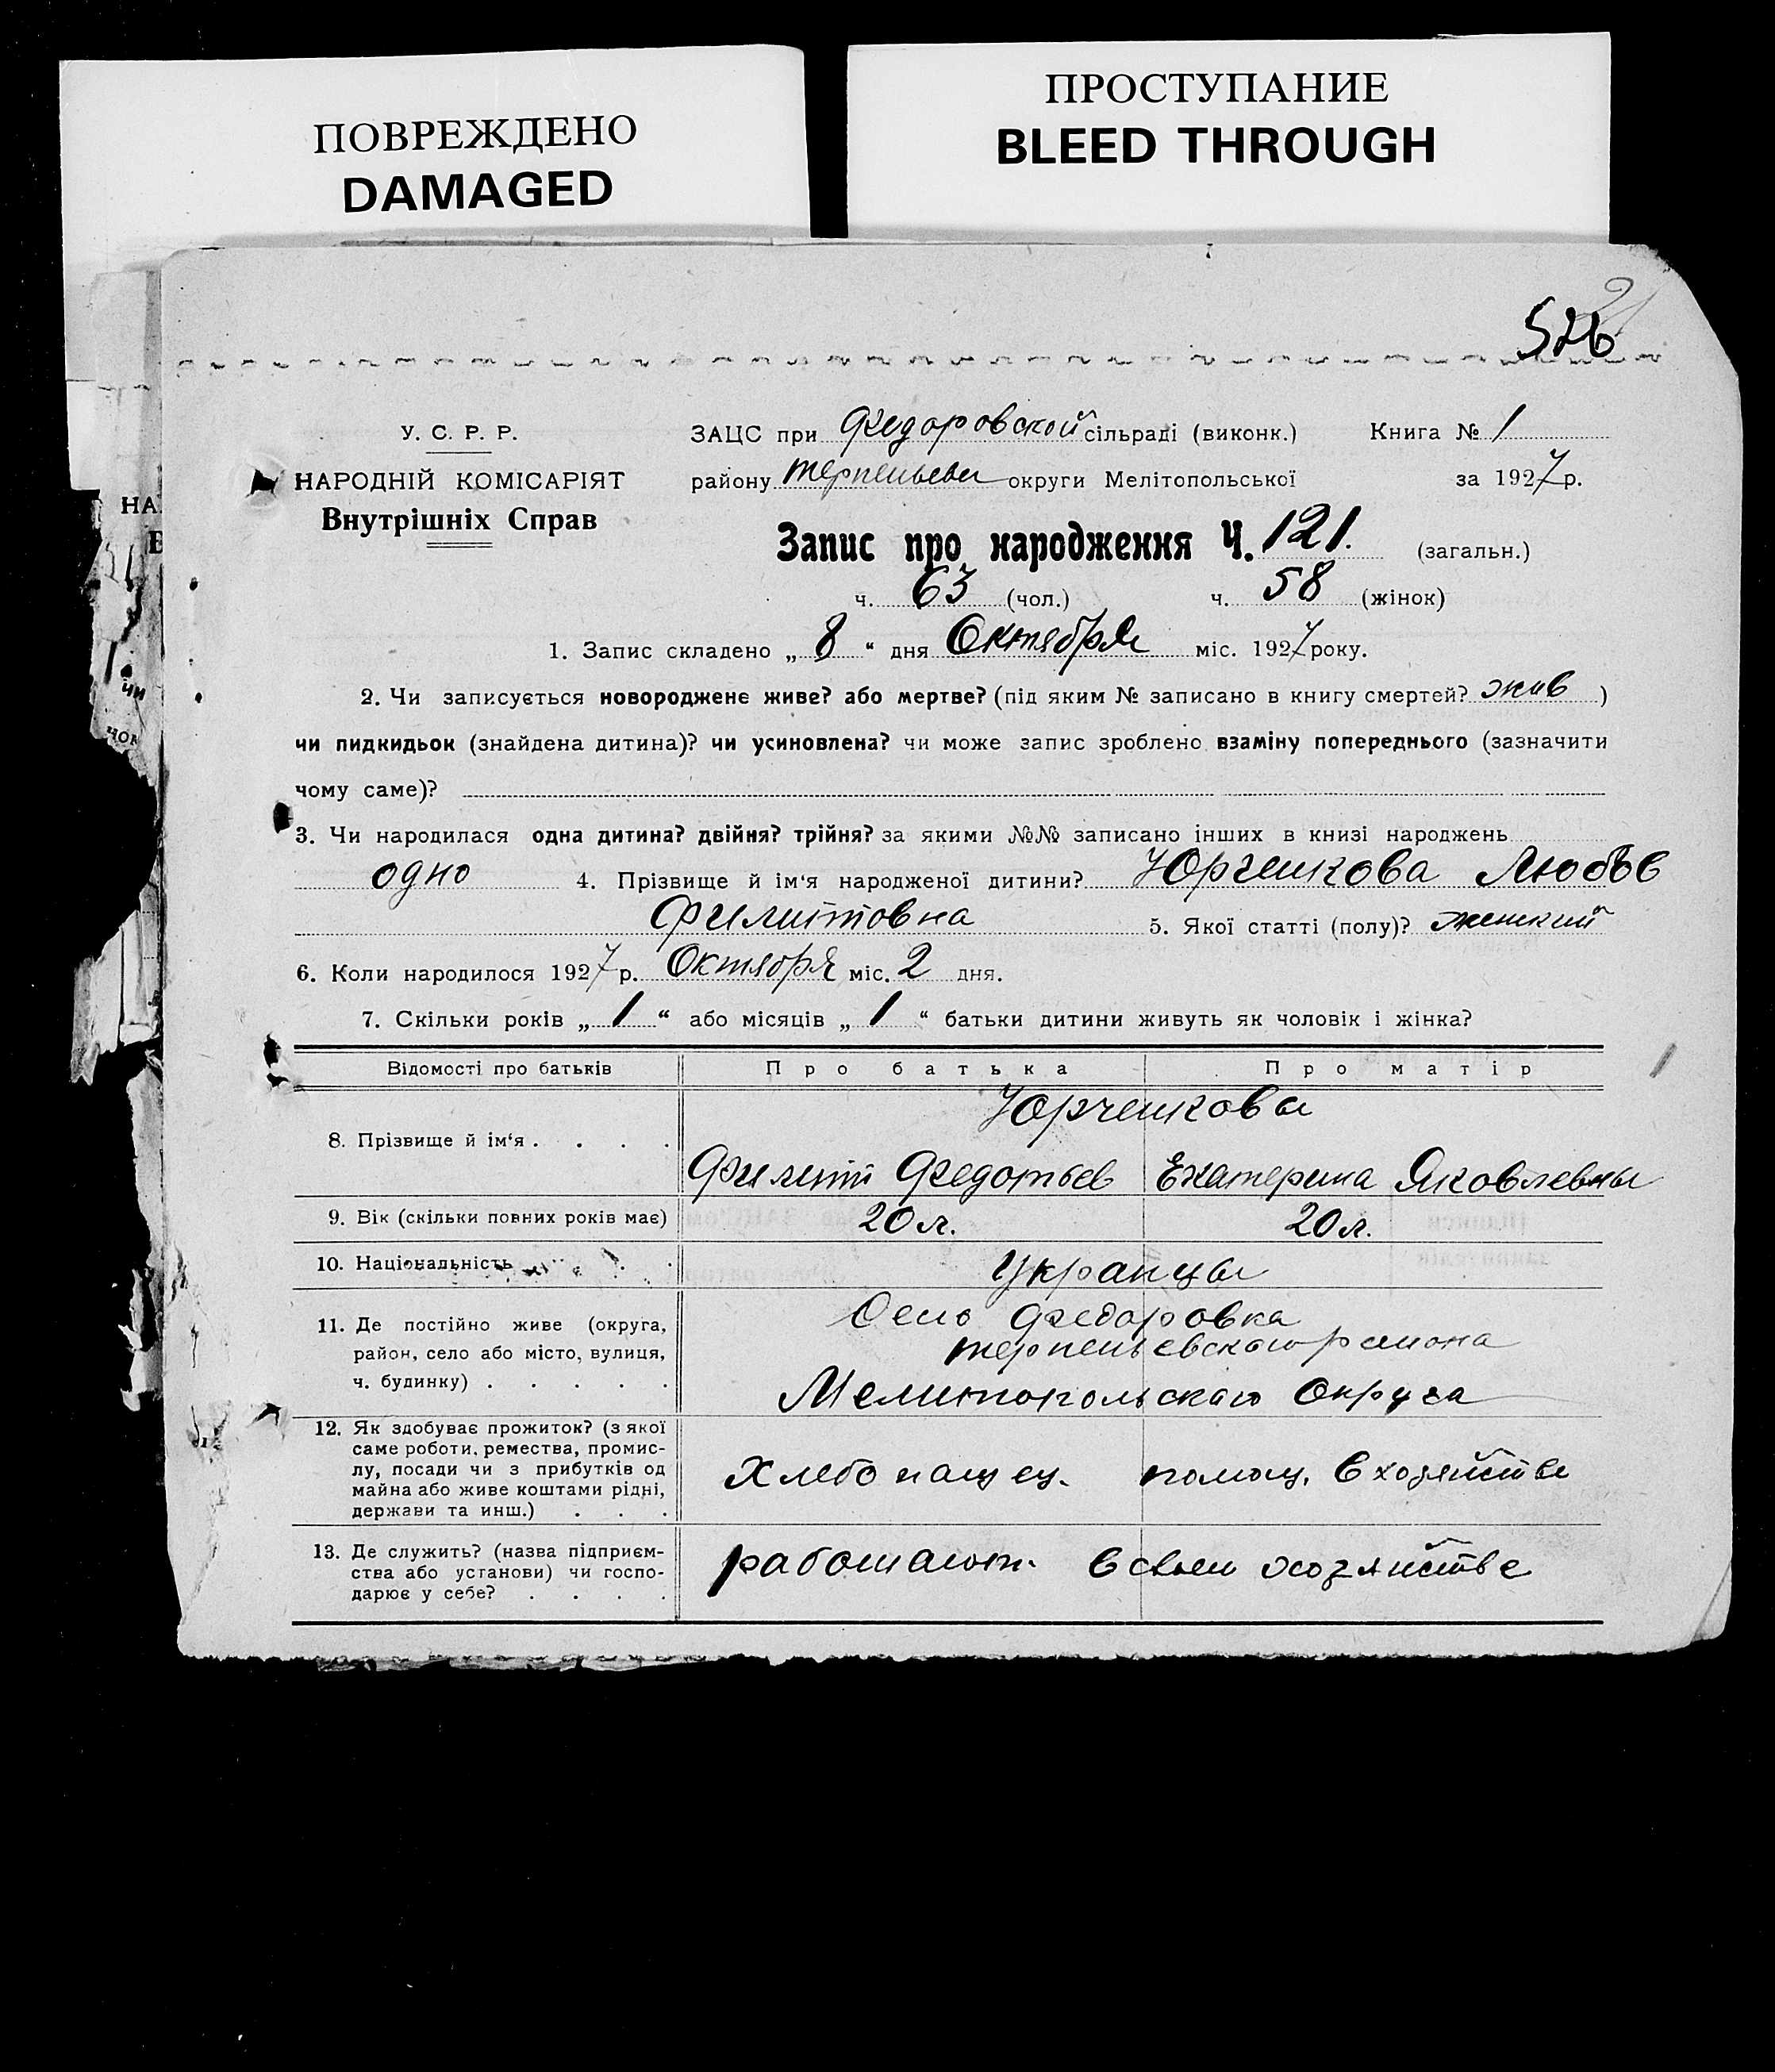 ПОВРЕЖДЕНО
DAMAGED
ПРОСТУПАНИЕ
BLEED THROUGH
526
У. С. Р. Р.
НАРОДНІЙ КОМІСАРІЯТ
Внутрішніх Справ
ЗАЦС при Федоровской сільраді (виконк.) Книга № 1
району Терпеньев округи Мелітопольської за 1927 р.
Запис про народження Ч. 121. (загальн.)
ч. 63 (чол.) ч. 58 (жінок)
1. Запис складено „ 8 “ дня Октября міс. 1927 року.
2. Чи записується новороджене живе? або мертве? (під яким № записано в книгу смертей? жив )
чи пидкидьок (знайдена дитина)? чи усиновлена? чи може запис зроблено взаміну попереднього (зазначити
чому саме)?
3. Чи народилася одна дитина? двійня? трійня? за якими №№ записано інших в книзі народжень
одно 4. Прізвище й ім‘я народженої дитини? Юрченкова Любов
Филиповна 5. Якої статті (полу)? женский
6. Коли народилося 1927 р. Октября міс. 2 дня.
7. Скільки років „ 1 “ або місяців „ 1 “ батьки дитини живуть як чоловік і жінка?
Відомості про батьків Про батька Про матір
Юрченковы
8. Прізвище й ім‘я . . . .
Филипп Федотьев Екатерина Яковлевны
9. Вік (скільки повних років має) 20 л. 20 л.
10. Національність Укранцы
11. Де постійно живе (округа, район, село або місто, вулиця, ч. будинку) . . . . .
Село Федоровка
терпеньевского района
Мелитопольскаго Округа
12. Як здобуває прожиток? (з якої
саме роботи, ремества, промис-
лу, посади чи з прибутків од
майна або живе коштами рідні,
держави та инш.) . . .
Хлебопащец. помощ. в хозяйстве
13. Де служить? (назва підприєм-
ства або установи) чи госпо-
дарює у себе? . . . .
работают. в своем хозяйстве